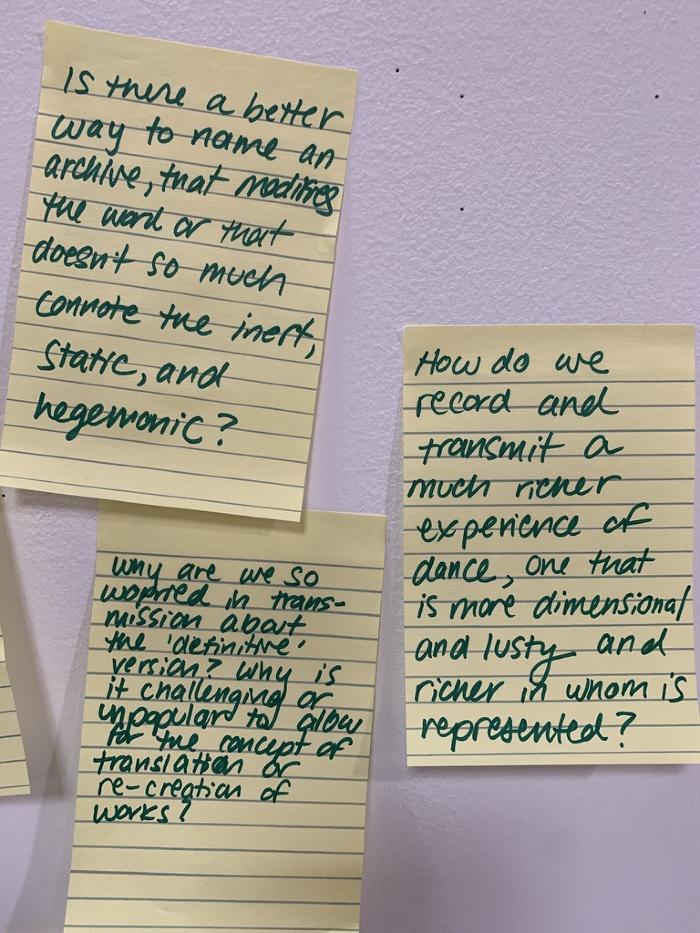 Is there a better
way to name an
archive, that modifies
the word or that
doesn't so much
connote the inert,
static, and
hegemonic?
How do we
record and
transmit a
much richer
experience of
dance, one that
is more dimensional
and lusty and
richer in whom is
represented?
why are we so
worried in trans-
mission about
the 'definitive'
version? Why is
it challenging or
unpopular to allow
for the concept of
translation or
re-creation of
works?